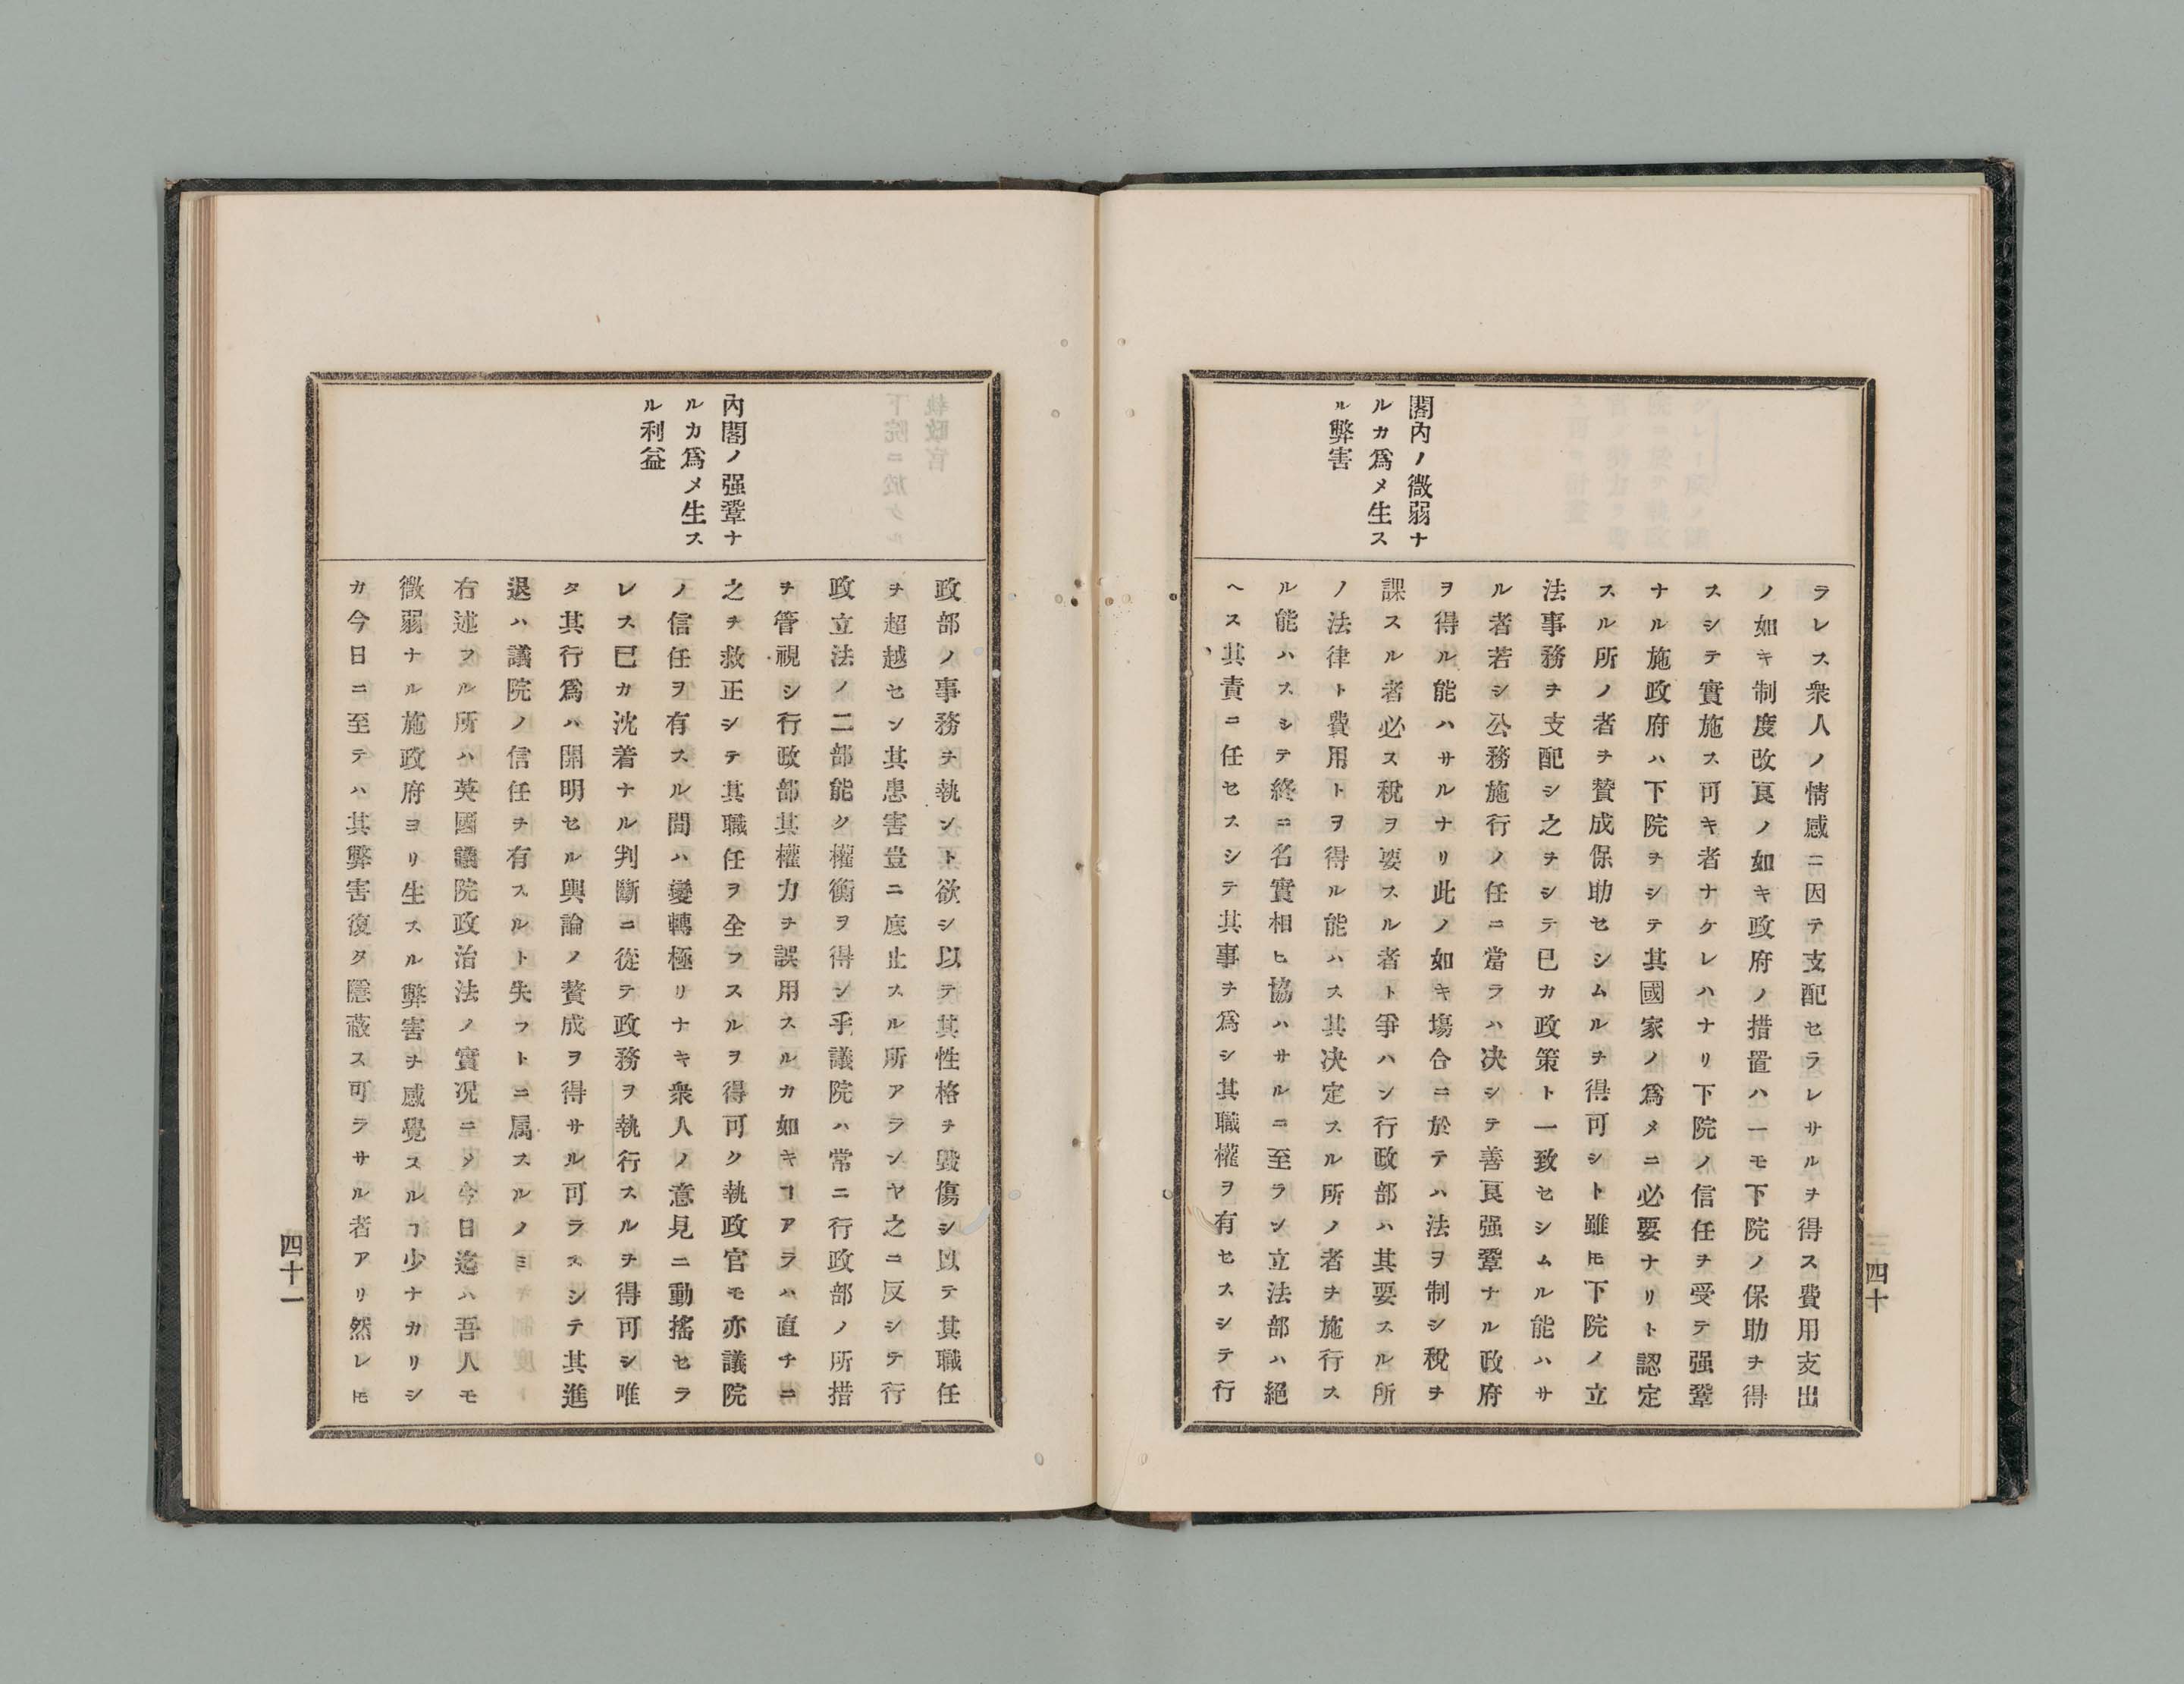 閣內ノ微弱ナ
ルカ爲メ生ス
ル弊害
ラレス衆人ノ情感ニ因テ支配セラレサルヲ得ス費用支出
ノ如キ制度改良ノ如キ政府ノ措置ハ一モ下院ノ保助ヲ得
スシテ實施ス可キ者ナケレハナリ下院ノ信任ヲ受テ强鞏
ナル施政府ハ下院ヲシテ其國家ノ爲メニ必要ナリト認定
スル所ノ者ヲ贊成保助セシムルヲ得可シト雖𪜈下院ノ立
法事務ヲ支配シ之ヲシテ已カ政策ト一致セシムル能ハサ
ル者若シ公務施行ノ任ニ當ラハ决シテ善良强鞏ナル政府
ヲ得ル能ハサルナリ此ノ如キ塲合ニ於テハ法ヲ制シ稅ヲ
課スル者必ス稅ヲ要スル者ト爭ハン行政部ハ其要スル所
ノ法律ト費用トヲ得ル能ハス其决定スル所ノ者ヲ施行ス
ル能ハスシテ終ニ名實相ヒ協ハサルニ至ラン立法部ハ絕
ヘス其責ニ任セスシテ其事ヲ爲シ其職權ヲ有セスシテ行
四十
內閣ノ强鞏ナ
ルカ爲メ生ス
ル利益
政部ノ事務ヲ執ント欲シ以テ其性格ヲ毀傷シ以テ其職任
ヲ超越セン其患害豈ニ底止スル所アランヤ之ニ反シテ行
政立法ノ二部能ク權衡ヲ得ン乎議院ハ常ニ行政部ノ所措
ヲ管視シ行政部其權力ヲ誤用スルカ如キヿアラハ直チニ
之ヲ救正シテ其職任ヲ全フスルヲ得可ク執政官モ亦議院
ノ信任ヲ有スル間ハ變轉極リナキ衆人ノ意見ニ動搖セラ
レス已カ沈着ナル判斷ニ從テ政務ヲ執行スルヲ得可シ唯
タ其行爲ハ開明セル輿論ノ贊成ヲ得サル可ラスシテ其進
退ハ議院ノ信任ヲ有スルト失フトニ属スルノミ
右述フル所ハ英國議院政治法ノ實况ニメ今日迄ハ吾人モ
微弱ナル施政府ヨリ生スル弊害ヲ感覺スルヿ少ナカリシ
カ今日ニ至テハ其弊害復タ隱蔽ス可ラサル者アリ然レ𪜈
四十一